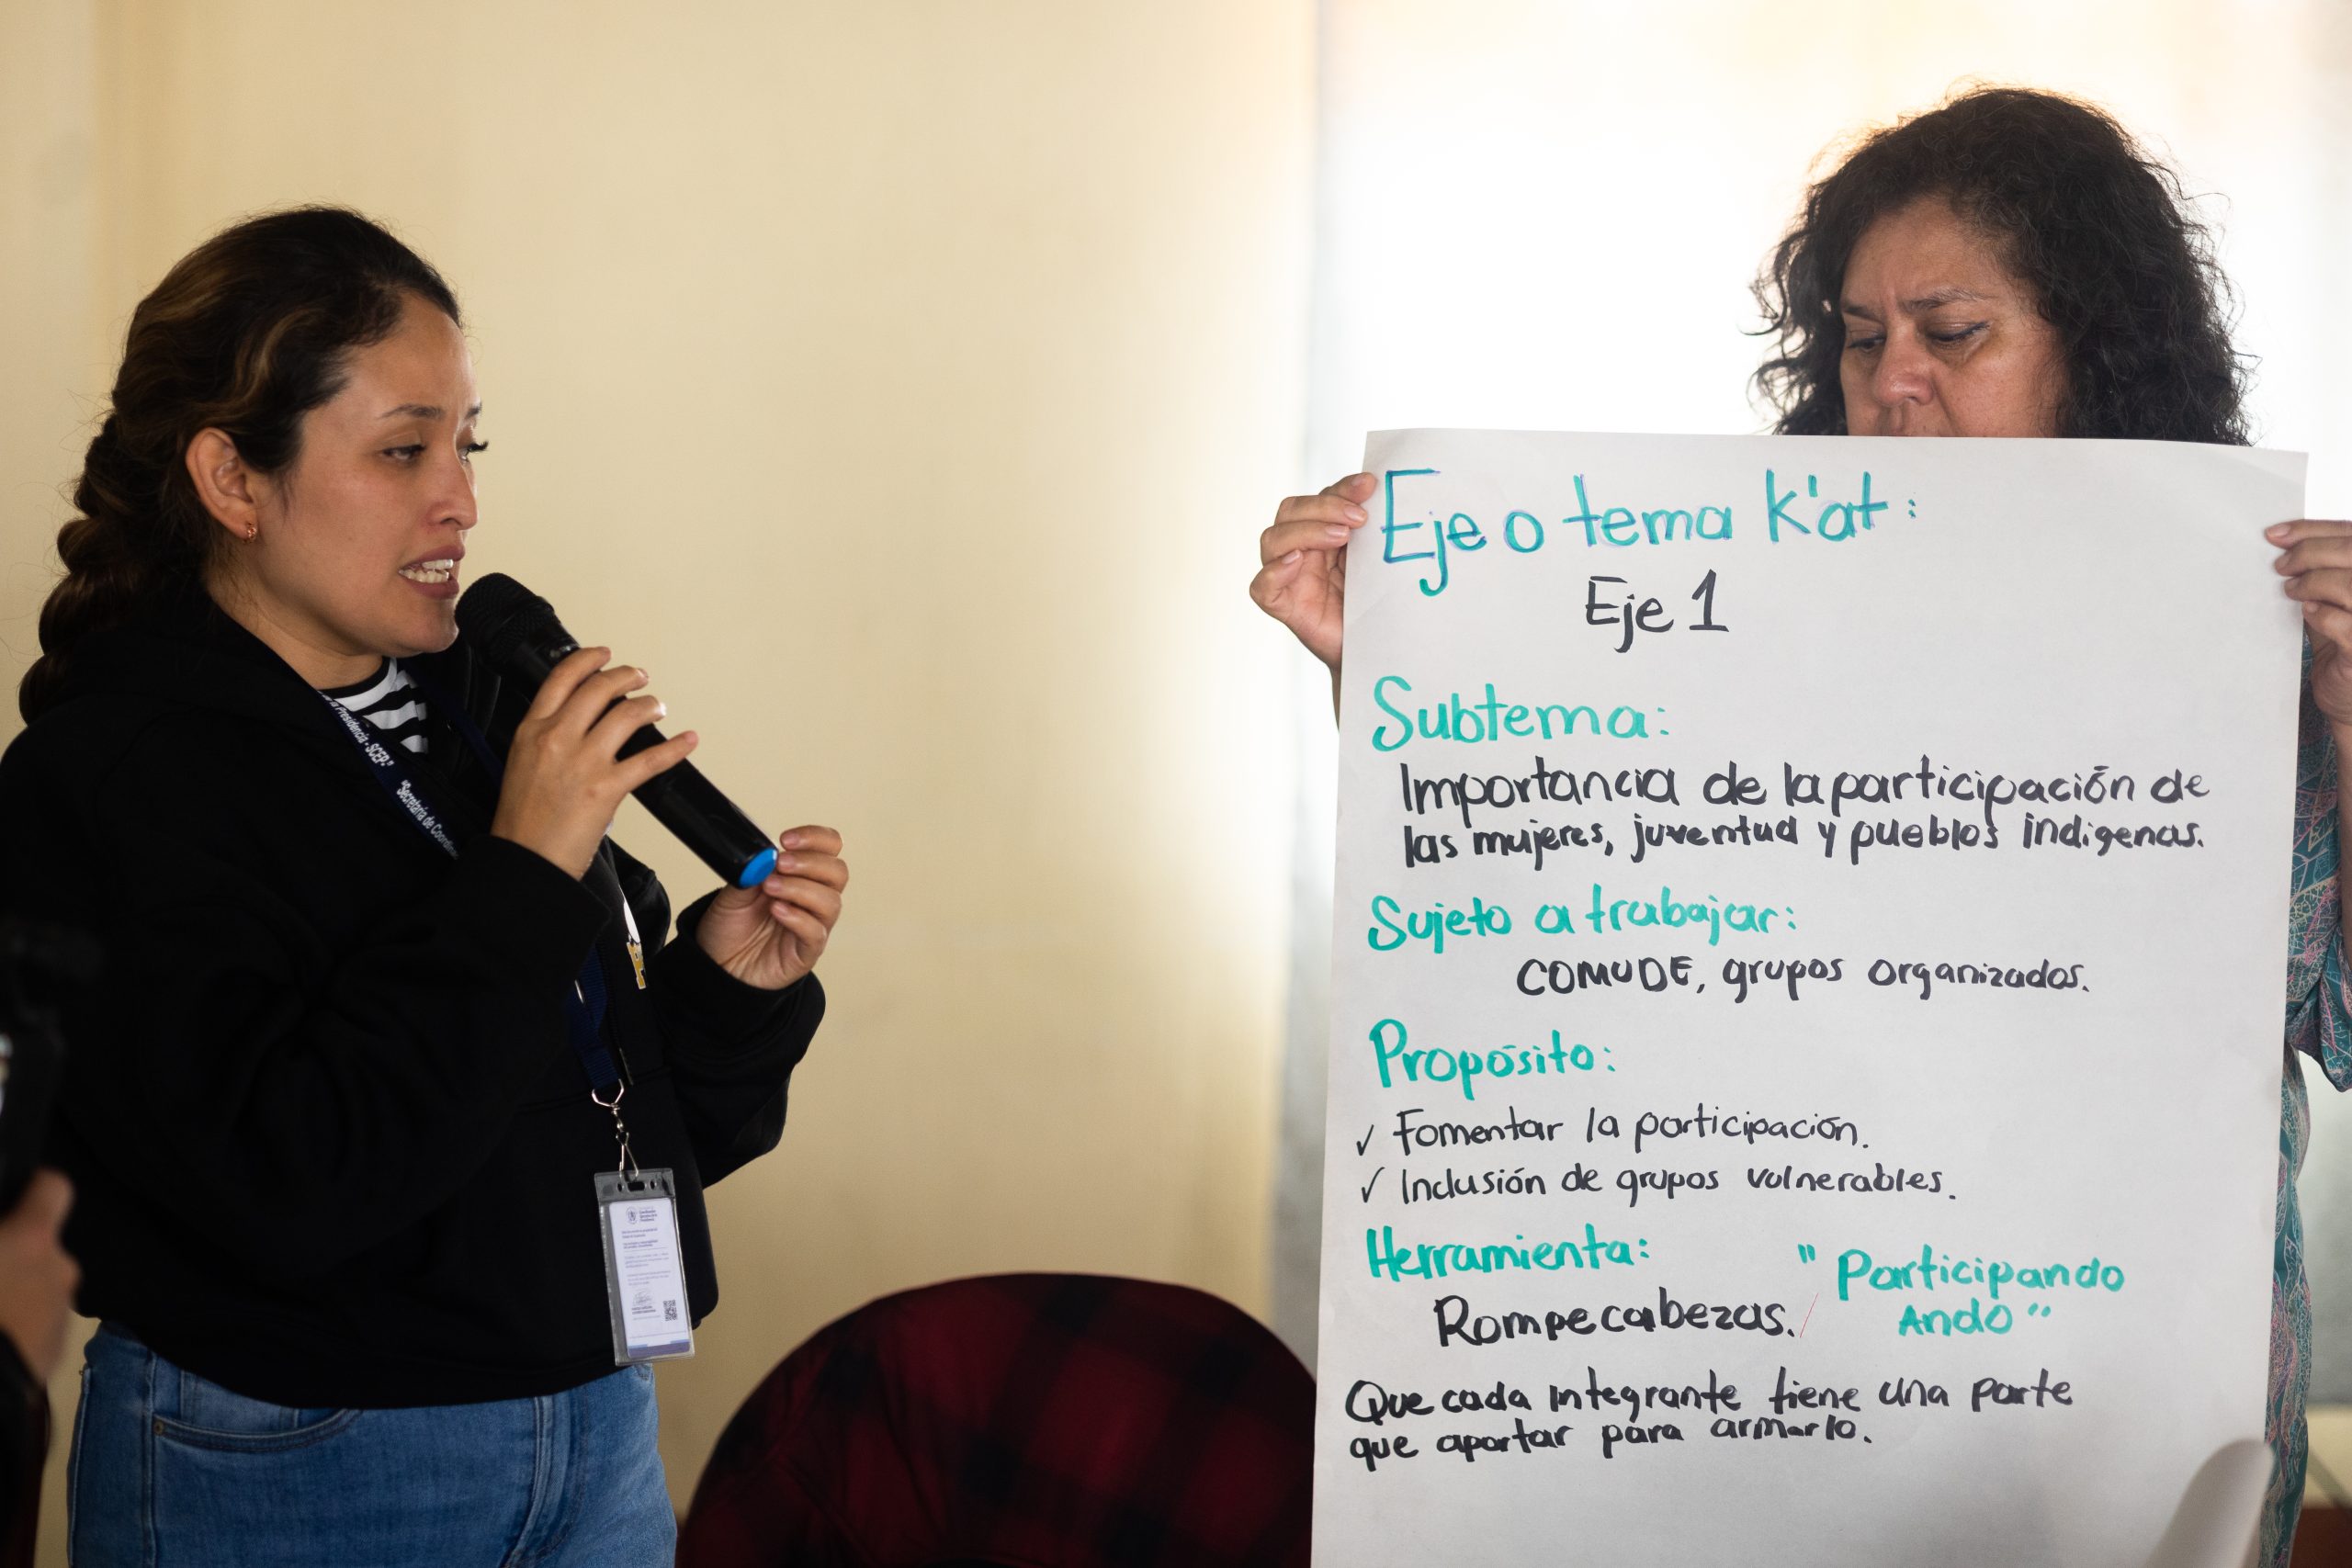 Eje o tema k'at:
Eje 1
Subtema:
Importancia de la participación de
las mujeres, juventud y pueblos indigenas.
Sujeto a trabajar:
COMUDE, grupos organizados.
Propósito:
✓ Fomentar la participación.
✓ Inclusión de grupos vulnerables.
Herramienta:
Rompecabezas. / "Participando
Ando"
Que cada integrante tiene una parte
que aportar para armarlo.
a Presidencia - SCEP-"
"Secretaría de Coordin